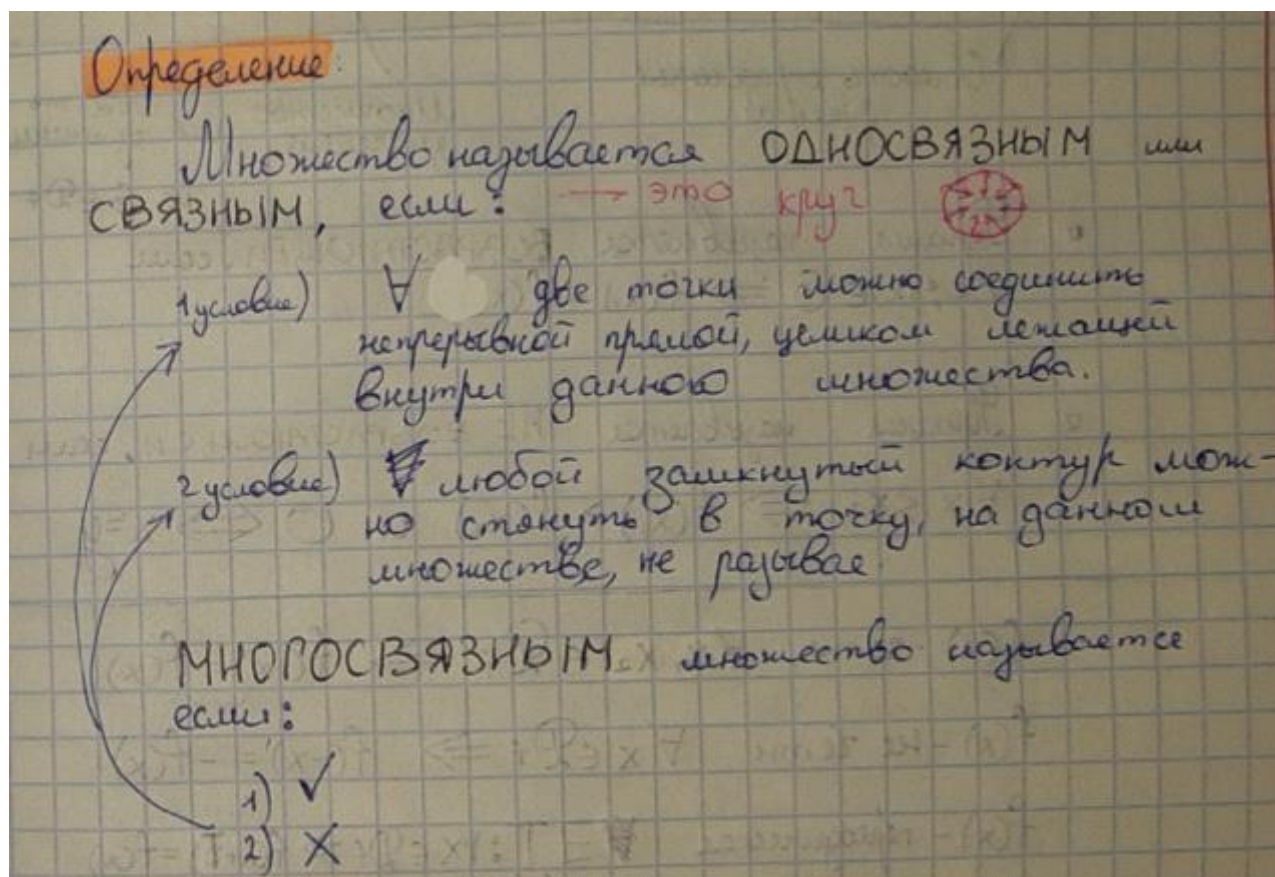 Определение:
Множество называется ОДНОСВЯЗНЫМ или
СВЯЗНЫМ, если: → это круг
1 условие) ∀ две точки можно соединить
непрерывной прямой, целиком лежащей
внутри данного множества.
2 условие) любой замкнутый контур мож-
но стянуть в точку, на данном
множестве, не разывая.
МНОГОСВЯЗНЫМ множество называется
если:
1) ✓
2) X